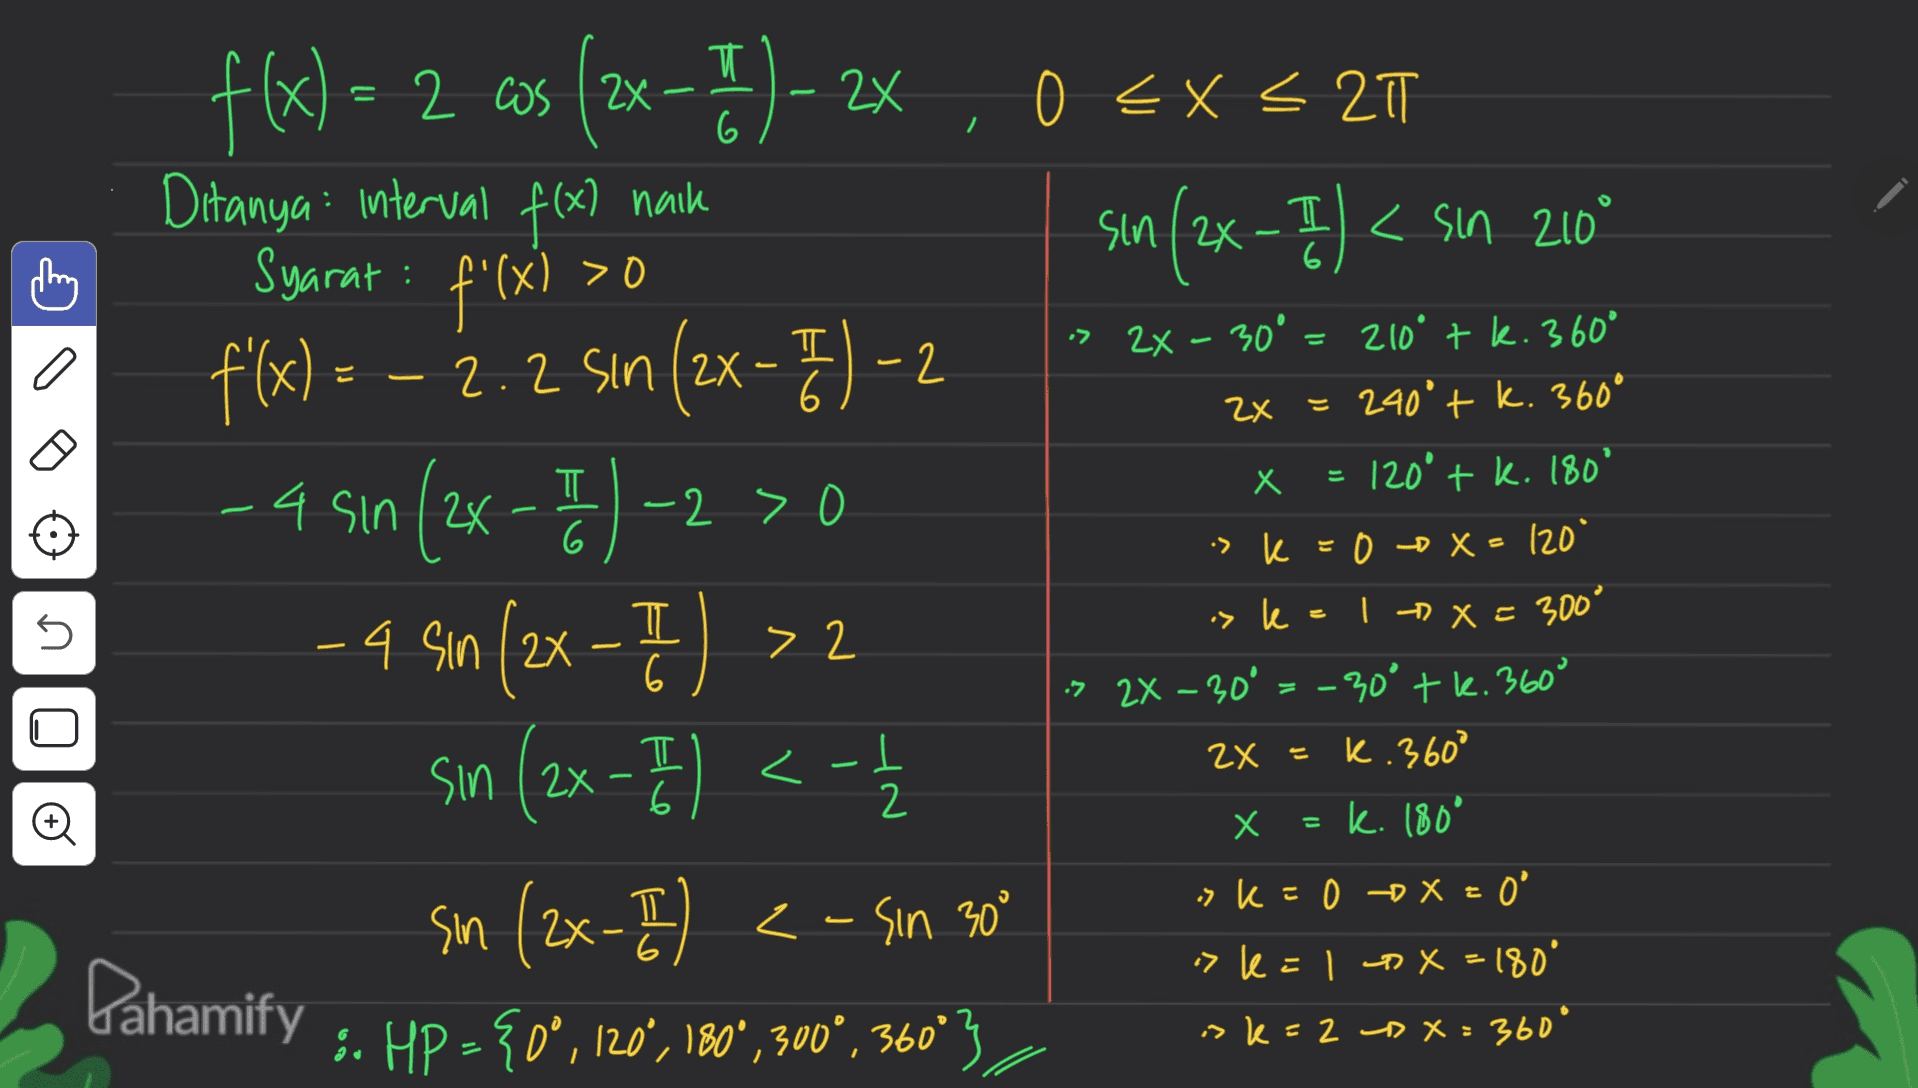 f(x) = 2 cos (2x - π/6) - 2x , 0 ≤ x ≤ 2π
Ditanya : interval f(x) naik
Syarat : f'(x) > 0
f'(x) = - 2.2 sin (2x - π/6) - 2
- 4 sin (2x - π/6) - 2 > 0
- 4 sin (2x - π/6) > 2
sin (2x - π/6) < - 1/2
sin (2x - π/6) < - sin 30°
∴ HP = {0°, 120°, 180°, 300°, 360°}
sin (2x - π/6) < sin 210°
·> 2x - 30° = 210° + k. 360°
2x = 240° + k. 360°
x = 120° + k. 180°
·> k = 0 → x = 120°
·> k = 1 → x = 300°
·> 2x - 30° = -30° + k. 360°
2x = k. 360°
x = k. 180°
·> k = 0 → x = 0°
·> k = 1 → x = 180°
·> k = 2 → x = 360°
Pahamify